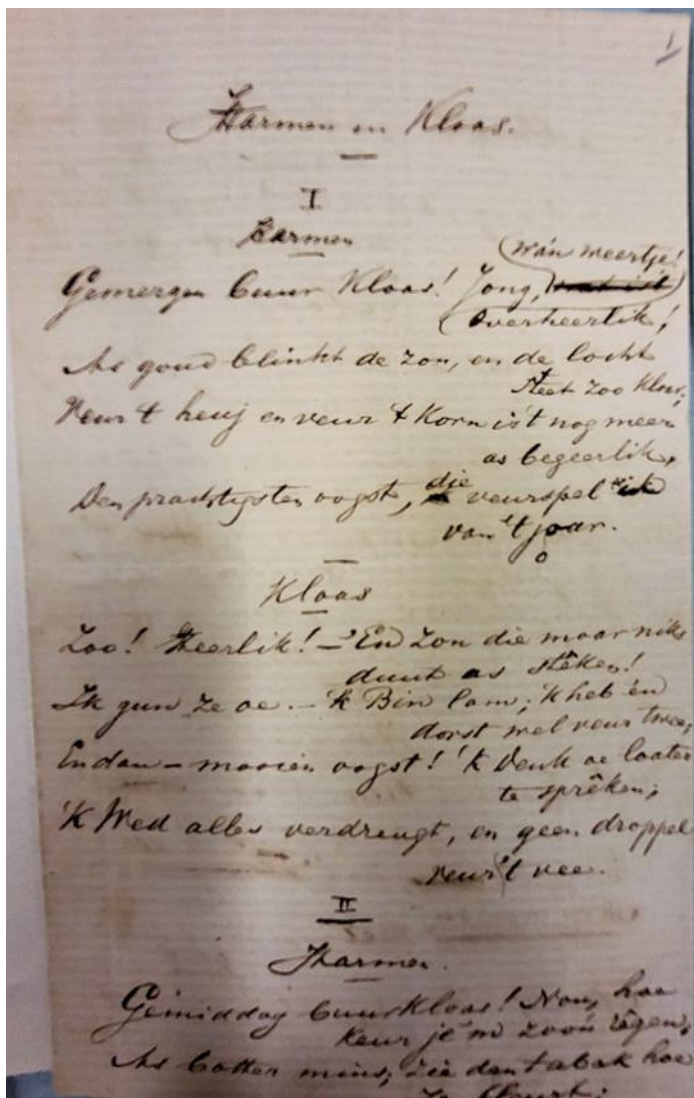 1
Harmen en Kloas.
I
Harmen
(wa'n weertje!
Gemergen buur Kloas! Jong, wat is't)
(overheerlik!
As goud blinkt de zon, en de locht
steet zoo kloar;
Veur 't heuj en veur 't Korn is't nog meer
as begeerlik,
Den prachtigsten oogst, die veurspel ik
van 't joar.
Kloas
Zoo! Heerlik! – 'En zon die moar niks
duut as stêken!
Ik gun ze oe. – 'k Bin lam; 'k heb én
dorst wel veur twee;
En dan – mooien oogst! 'k Denk oe loater
te sprêken;
'K Wed alles verdreugt, en geen droppel
veur 't vee.
II
Harmen.
Gemiddag buur Kloas! Nou, hoe
keur je'm zoo'n rêgen;
As botter mins; zie den tabak hoe